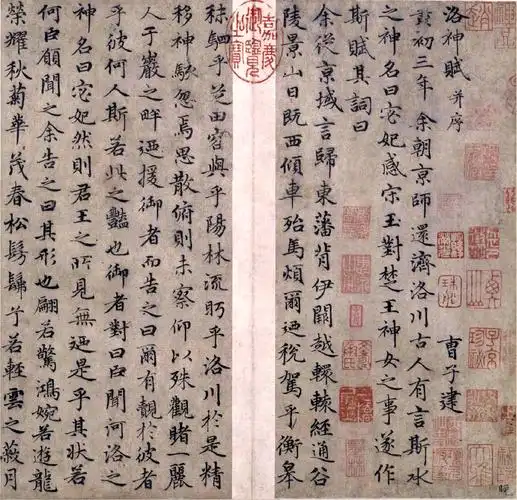 洛神賦 并序
曹子建
初三年余朝京師還濟洛川古人有言斯水
之神名曰宓妃感宋玉對楚王神女之事遂作
斯賦其詞曰
余從京域言歸東藩背伊闕越轘轅經通谷
陵景山日既西傾車殆馬煩爾迺稅駕乎衡皋
嘉慶御覽之寶
秣駟乎芝田容與乎陽林流眄乎洛川於是精
移神駭忽焉思散俯則未察仰以殊觀睹一麗
人于巖之畔迺援御者而告之曰爾有覿於彼者
乎彼何人斯若此之豔也御者對曰臣聞河洛之
神名曰宓妃然則君王之所見無迺是乎其狀若
何臣願聞之余告之曰其形也翩若驚鴻婉若遊龍
榮耀秋菊華茂春松髣髴兮若輕雲之蔽月